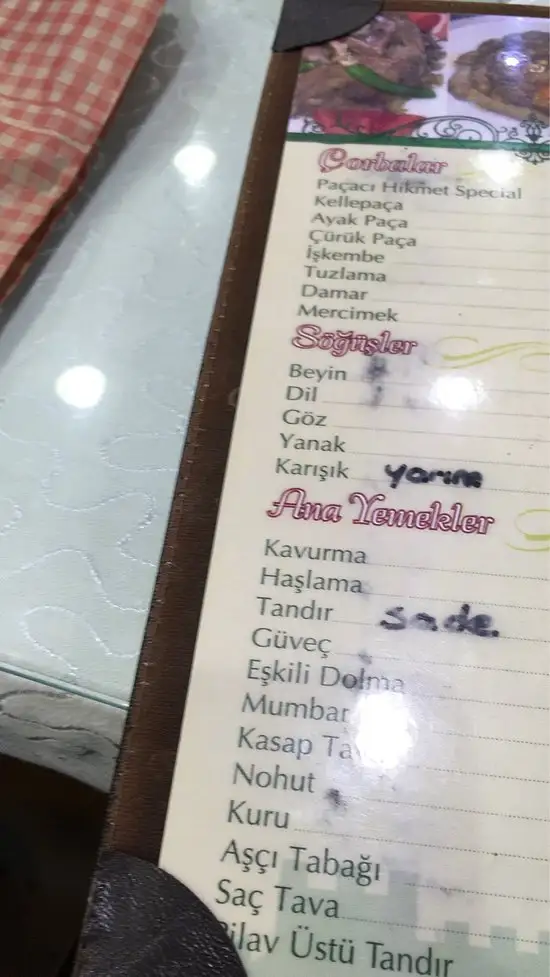 Çorbalar
Paçacı Hikmet Special
Kellepaça
Ayak Paça
Çürük Paça
İşkembe
Tuzlama
Damar
Mercimek
Söğüşler
Beyin
Dil
Göz
Yanak
Karışık yarım
Ana Yemekler
Kavurma
Haşlama
Tandır sade
Güveç
Eşkili Dolma
Mumbar
Kasap Ta
Nohut
Kuru
Aşçı Tabağı
Saç Tava
Pilav Üstü Tandır